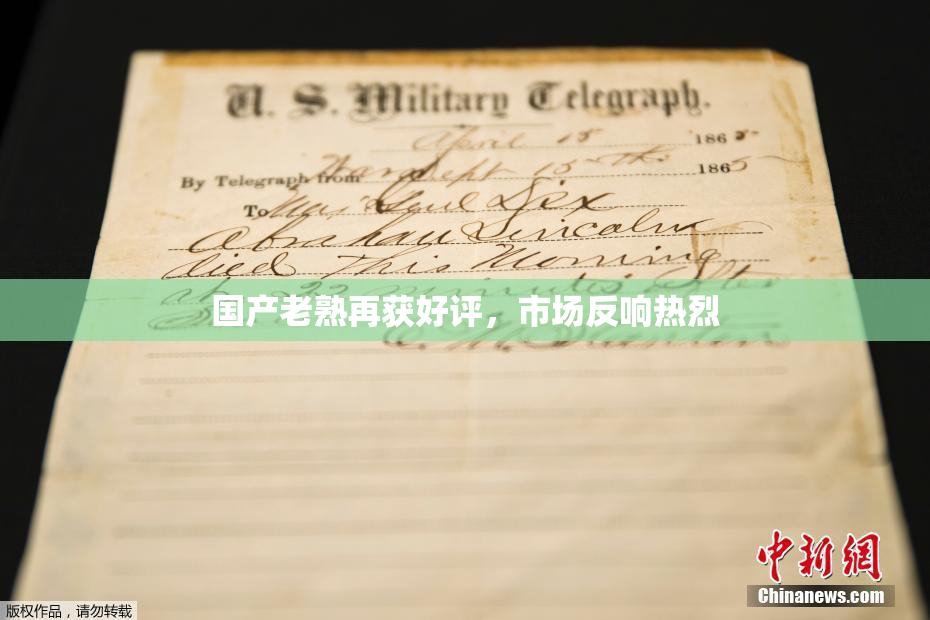 U. S. Military Telegraph.
April 15 1865
By Telegraph from War Dept 15th 1865
To Maj Genl Dix
Abraham Lincoln
died This Morning
at 22 minutes after
国产老熟再获好评，市场反响热烈
中新网
Chinanews.com
版权作品，请勿转载